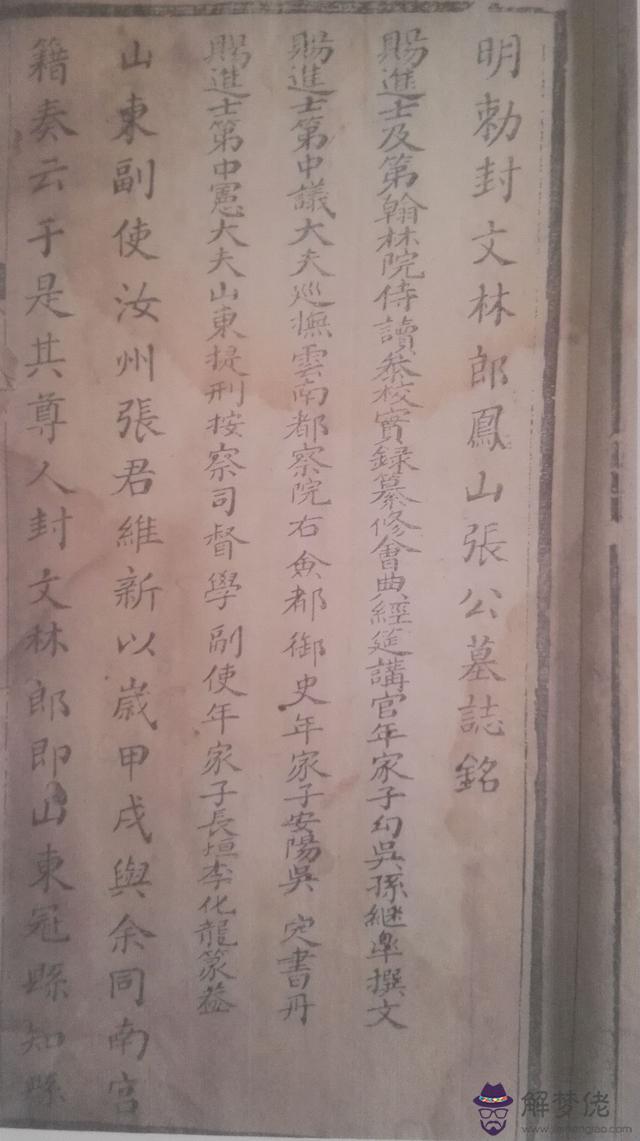 明勅封文林郎鳳山張公墓誌銘
賜進士及第翰林院侍讀叅校實録纂修會典經筵講官年家子勾吳孫継皐撰文
賜進士第中議大夫巡撫雲南都察院右僉都御史年家子安陽吳定書丹
賜進士第中憲大夫山東提刑按察司督學副使年家子長垣李化龍篆葢
山東副使汝州張君維新以嵗甲戌與余同南宫
籍奏云于是其尊人封文林郎即山東冠縣知縣
解梦佬
www.jiemenglao.com